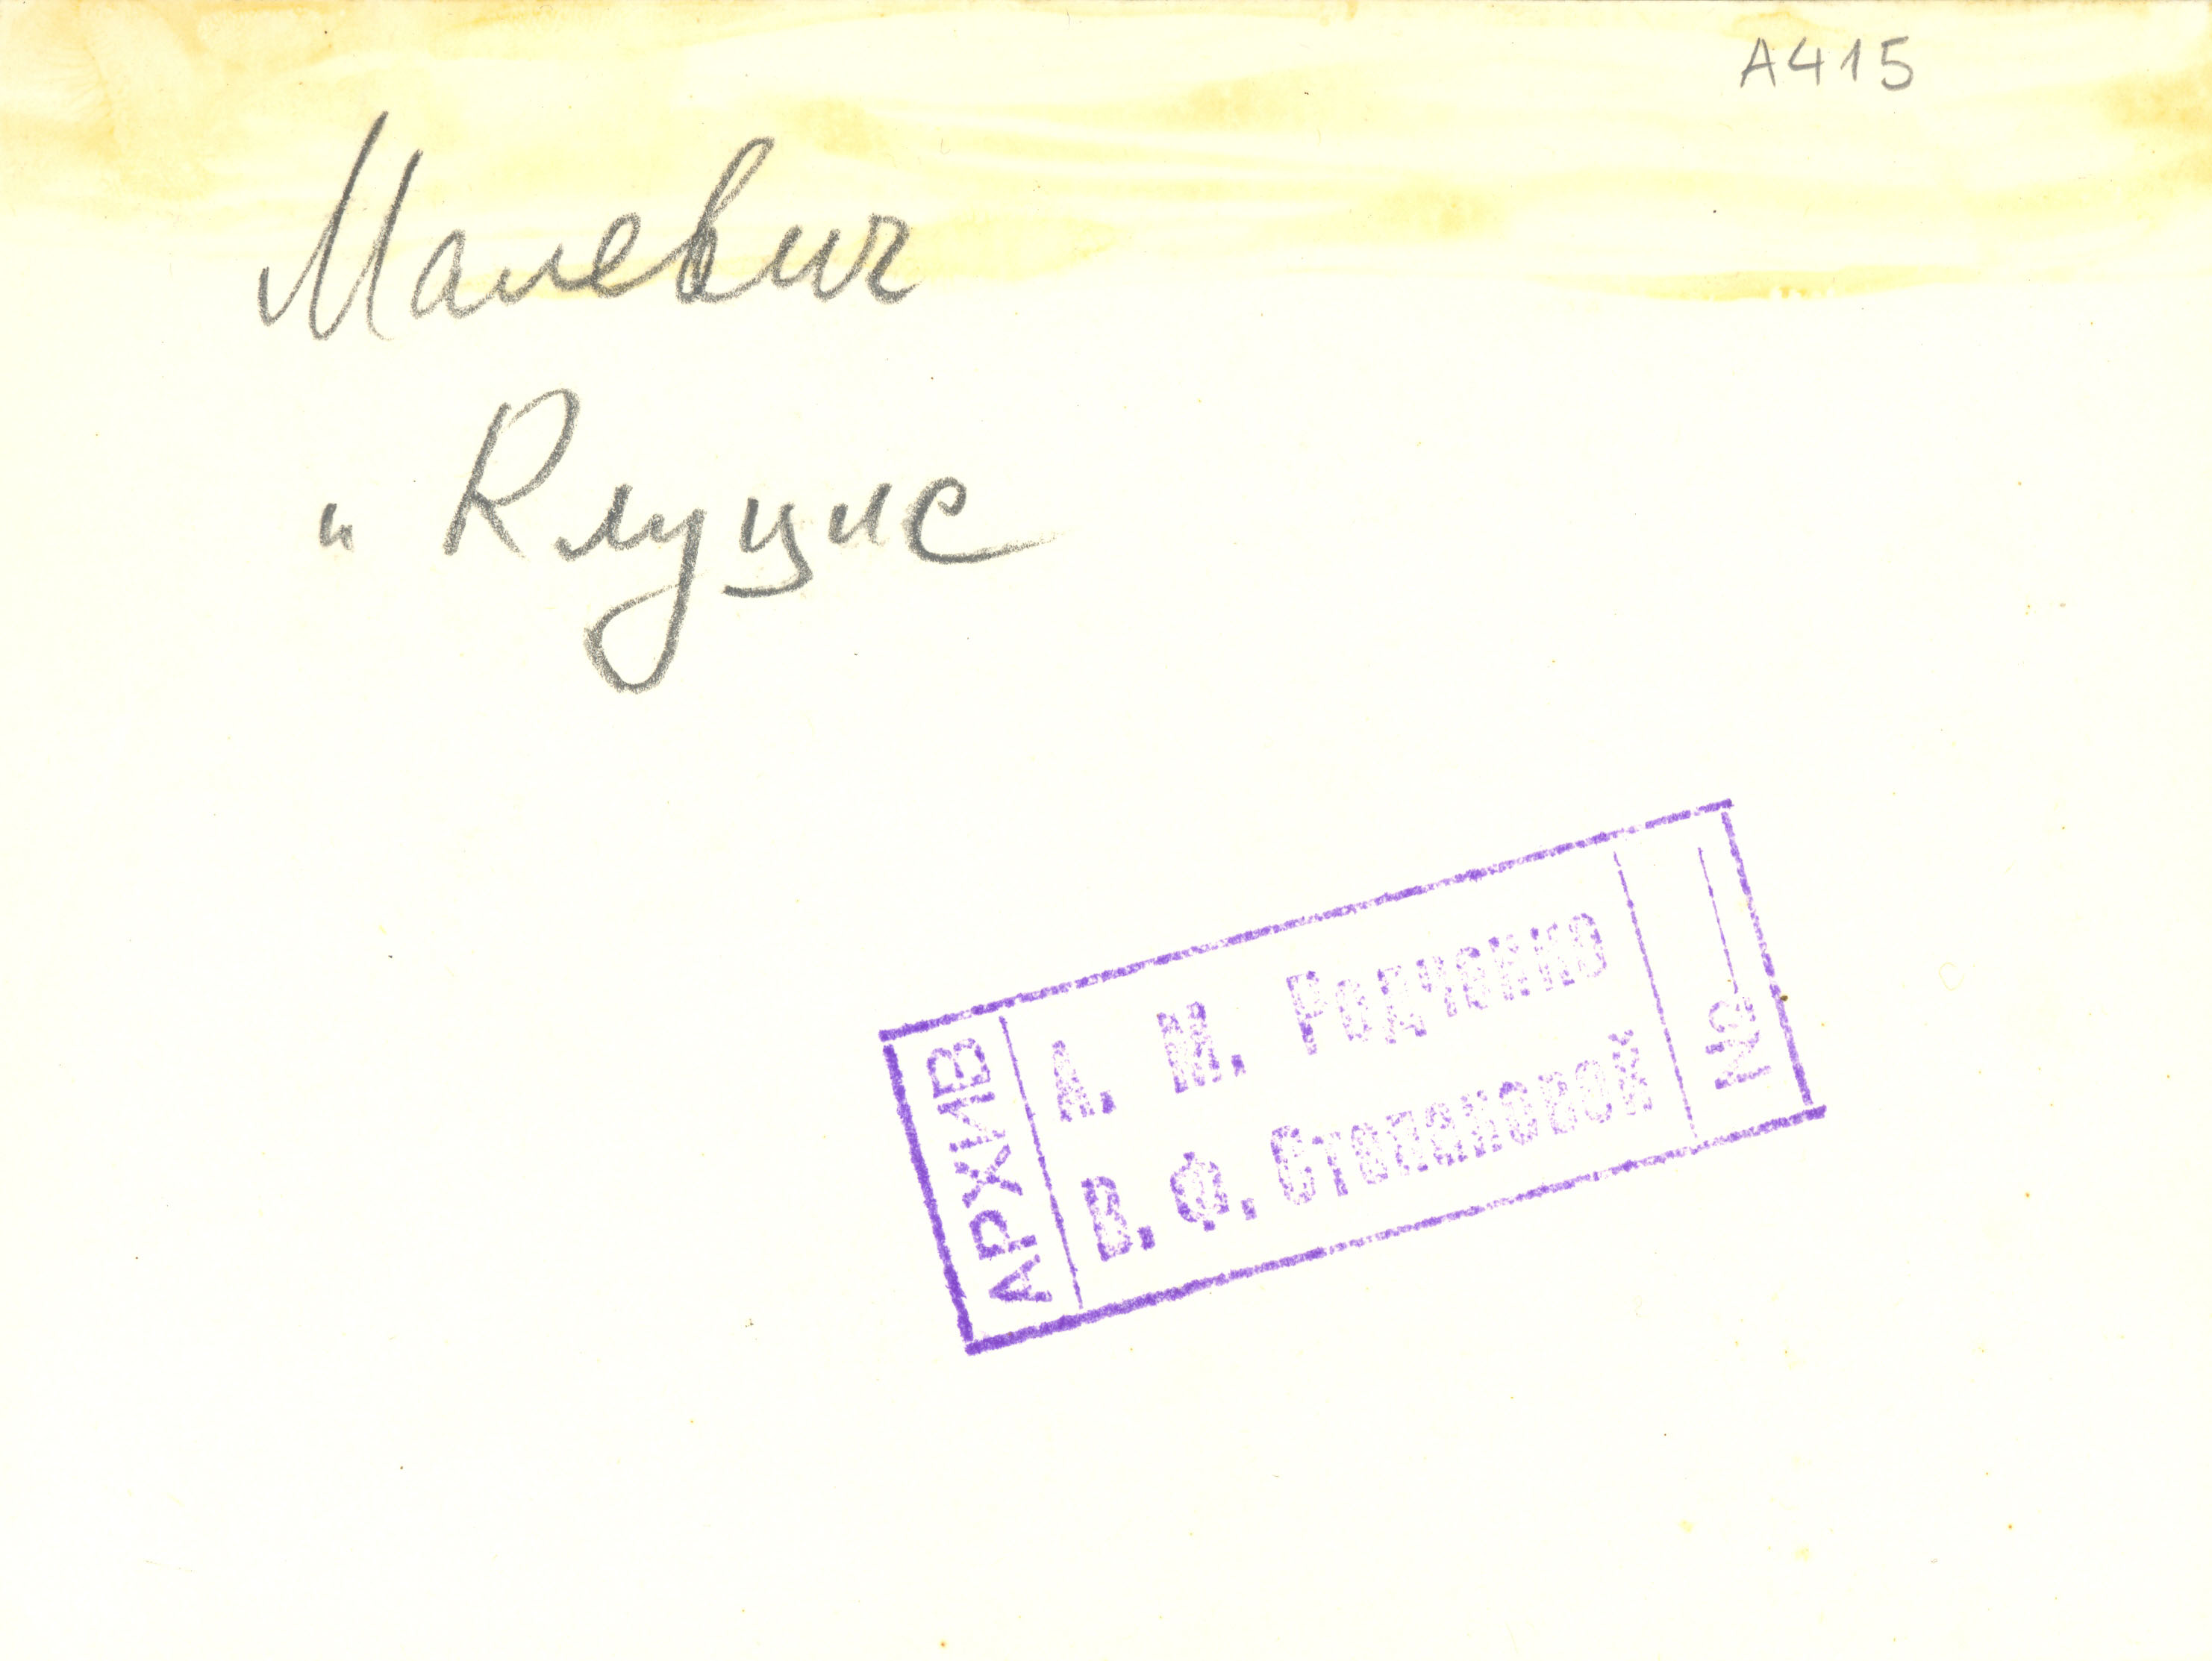 A415
Малевич
и Клуцис
АРХИВ
А. М. Родченко
В. Ф. Степановой
№